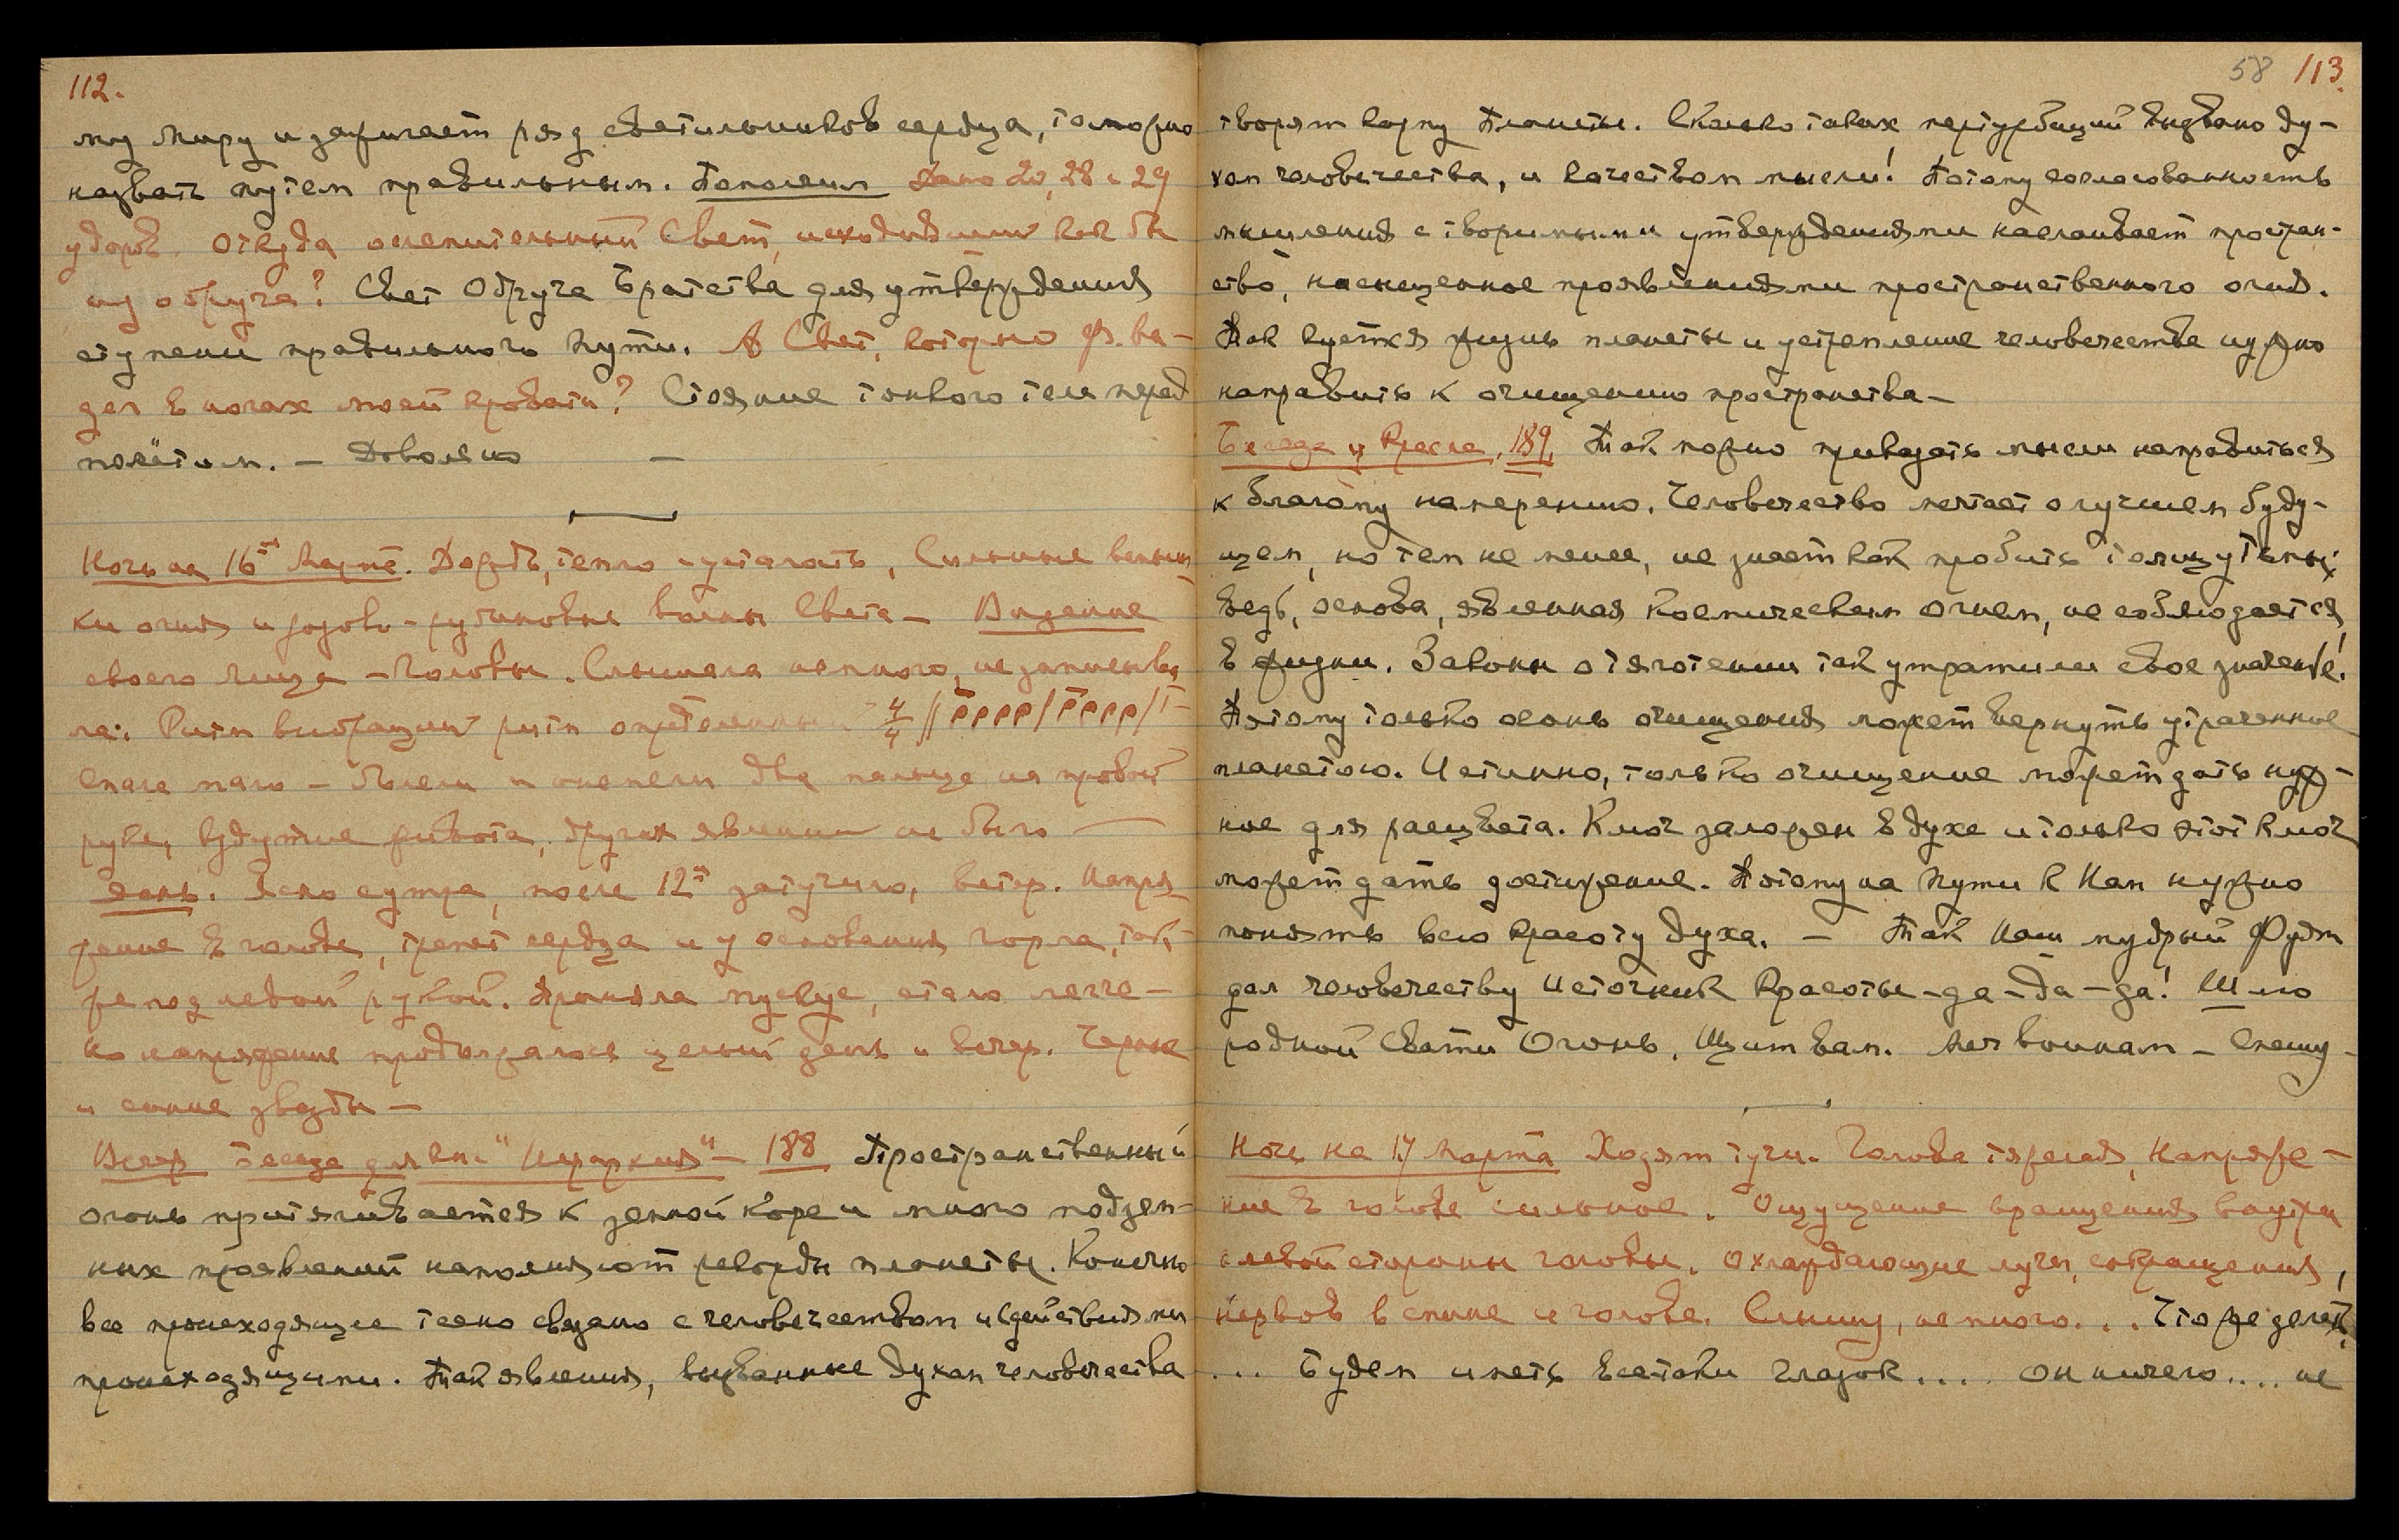 112.
му Миру и зажигает ряд светильников сердца, то можно
назвать путем правильным. Пополам Дано 20, 28 и 29
ударов. Откуда ослепительный Свет, исходивший как бы
из обруча? Свет Обруча Братства для утверждения
ступени правильного Пути. А Свет, который Ф. ви-
дел в ногах моей кровати? Стояние тонкого тела перед
полётом. — Довольно —
Ночь на 16ое Марта. Дождь, тепло — усталость, Сильные вспыш-
ки огня и розово-рубиновые волны Света — Видение
своего лица — Головы. Слышала немного, не записыва-
ла. Ритм вибраций ритм определенный 4/4
Спала мало — болели и онемели два пальца на правой
руке, вздутие живота, других явлений не было —
День. Ясно с утра, после 12ти затучило, ветер. Напря-
жение в голове, трепет сердца и у основания горла, так-
же под левой рукой. Приняла мускус, стало легче —
Но напряжение продолжалось целый день и вечер. Черные
и синие звезды —
Вечер Беседа для кни. "Иерархия" — 188 Пространственный
огонь притягивается к земной коре и много подзем-
ных проявлений наполняют рекорды планеты. Конечно
все происходящее тесно связано с человечеством и действиями
происходящими. Так явления, вызванные духом человечества
58 113.
творят карму Планеты. Сколько таких пертурбаций вызвано ду-
хом человечества, и качеством мысли! Потому согласованность
мышления с творимыми утверждениями наслаивает простран-
ство, насыщенное проявлениями пространственного огня.
Так куется жизнь планеты и устремление человечества нужно
направить к очищению пространства —
Беседа у Кресла, 189. Так можно приказать мысли направиться
к благому намерению. Человечество мечтает о лучшем буду-
щем, но тем не менее, не знает как пробить толщу тьмы;
ведь, основа, явленная Космическим Огнем, не соблюдается
в жизни. Законы о тяготении так утратили свое значение!
Потому только огонь очищения может вернуть утраченное
планетою. Истинно, только очищение может дать нуж-
ное для расцвета. Ключ заложен в духе и только этот ключ
может дать достижение. Потому на Пути к Нам нужно
понять всю красоту духа. — Так Наш мудрый Фудм
дал человечеству Источник Красоты — да — да — да! Шлю
родной Свати Огонь. Щит вам. Меч воинам — Спешу —
Ночь на 17 Марта Ходят тучи. Голова тяжелая, Напряже-
ние в голове сильное. Ощущение вращения внутри
с левой стороны головы. Охлаждающие лучи, сокращения,
нервов в спине и голове. Слышу, немного... Что же делать
... Будем иметь всетаки глазок.... он ничего.... не